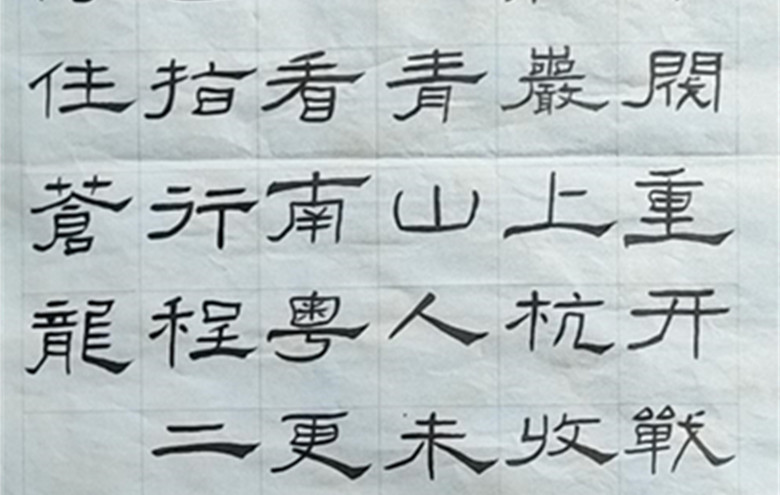 閥重开戰
巖上杭收
青山人未
看南粤更
指行程二
住蒼龍